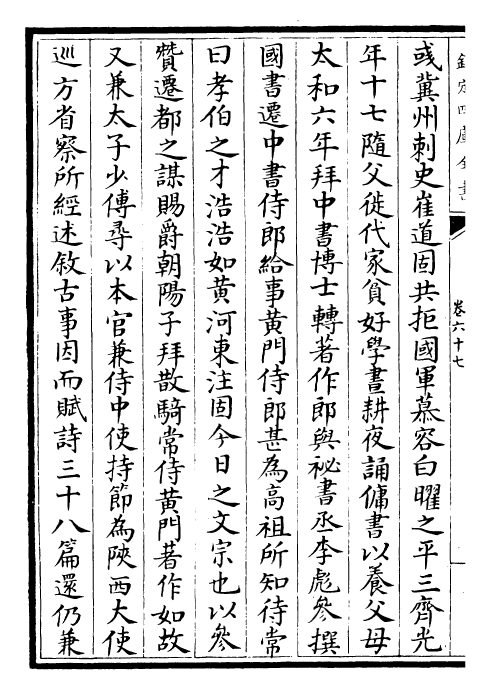 欽定四庫全書
卷六十七
彧冀州刺史崔道固共拒國軍慕容白曜之平三齊光
年十七隨父徙代家貧好學晝耕夜誦傭書以養父母
太和六年拜中書博士轉著作郎與祕書丞李彪參撰
國書遷中書侍郎給事黄門侍郎甚為高祖所知待常
曰孝伯之才浩浩如黄河東注固今日之文宗也以參
贊遷都之謀賜爵朝陽子拜散騎常侍黄門著作如故
又兼太子少傅尋以本官兼侍中使持節為陜西大使
巡方省察所經述敘古事因而賦詩三十八篇還仍兼